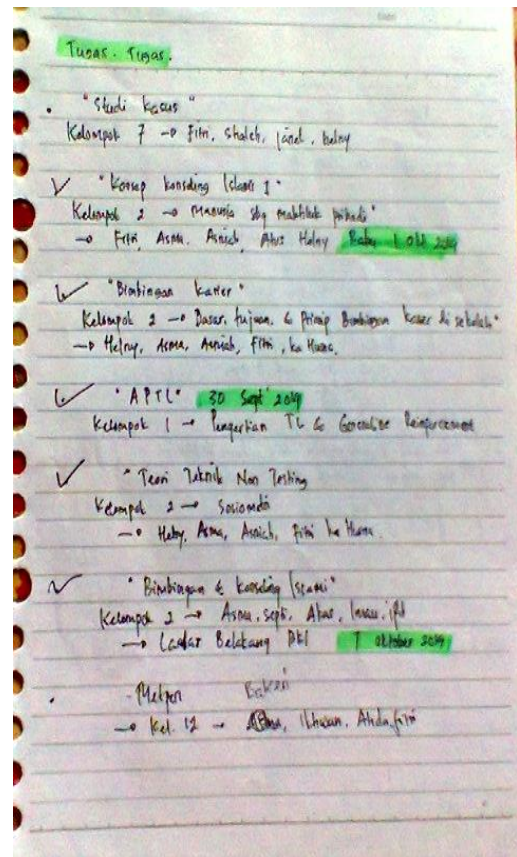 Tugas - Tugas.
"Studi kasus"
Kelompok 7 → Fitri, Shaleh, Janel, Helny
"Konsep konseling Islami I"
Kelompok 2 → Manusia sbg makhluk pribadi"
→ Fitri, Asma, Asniah, Helny Rabu, 1 Okt 2014
"Bimbingan karier"
Kelompok 2 → Dasar, tujuan, & Prinsip Bimbingan karier di sekolah"
→ Helny, Asma, Asniah, Fitri, ka Husna.
"APTL" 30 Sept' 2014
Kelompok 1 → Pengertian TL & Generalize Reinforcement
"Teori Teknik Non Testing
Kelompok 2 → Sosiometri
→ Helny, Asma, Asniah, Fitri ka Husna.
"Bimbingan & konseling Islami"
Kelompok 2 → Asma, Septi,
→ Latar Belakang BKI 7 Oktober 2014
→ Kel. 12 → Ikhwan, Alida, Fitri